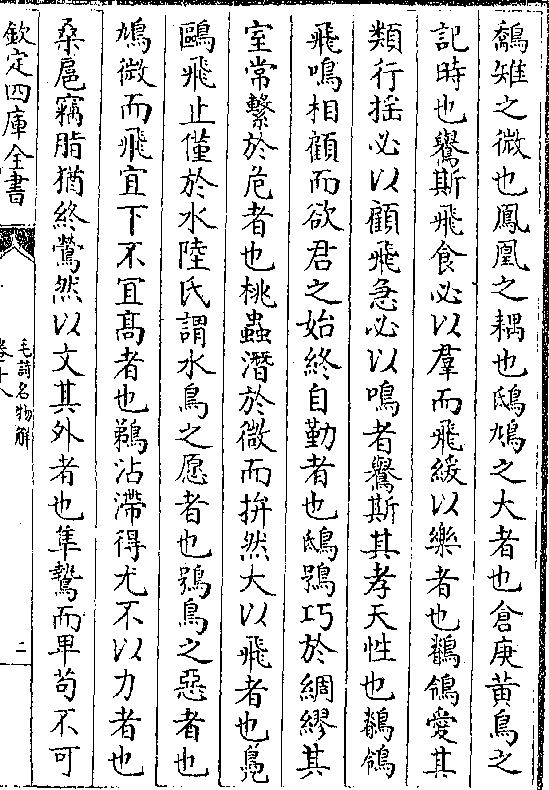 鷸雉之微也鳳凰之耦也鴟鳩之大者也倉庚黃鳥之
記時也鸒斯飛食必以羣而飛緩以樂者也鶺鴒愛其
類行揺必以顧飛急必以鳴者鸒斯其孝天性也鶺鴒
飛鳴相顧而欲君之始終自勤者也鴟鴞巧於綢繆其
室常繫於危者也桃蟲潛於微而拚然大以飛者也鳧
鷗飛止僅於水陸氏謂水鳥之愿者也鴞鳥之惡者也
鳩微而飛宜下不宜髙者也鵜沾滯得尤不以力者也
桑扈竊脂猶終鶯然以文其外者也隼鷙而卑苟不可
欽定四庫全書
毛詩名物解
卷十八
二